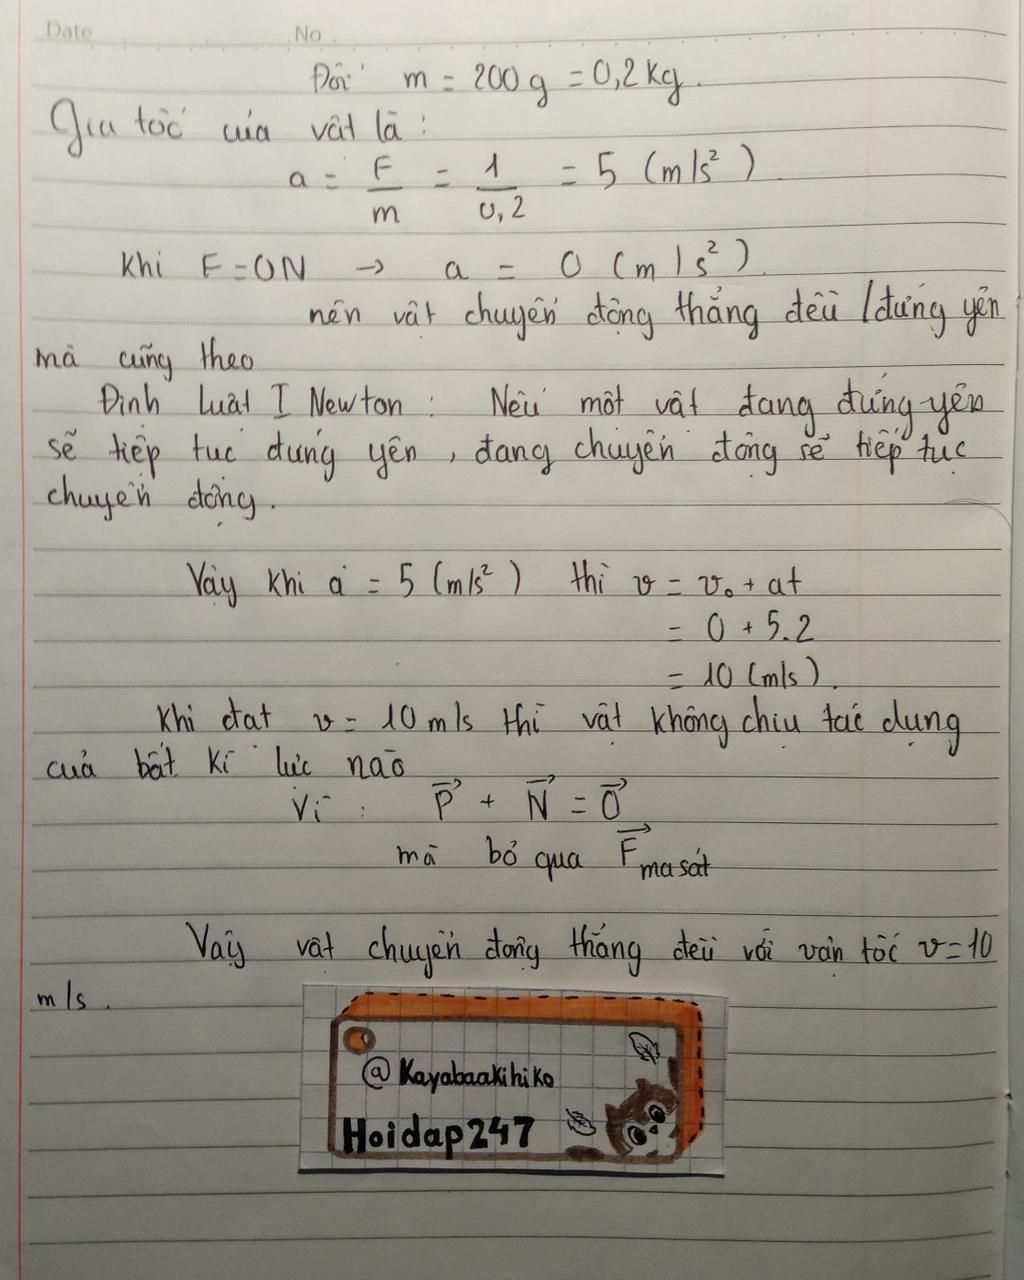 Date No
Đổi m = 200g = 0,2kg.
Gia tốc của vật là :
a = F/m = 1/0,2 = 5 (m/s²)
Khi F = 0N → a = 0 (m/s²)
nên vật chuyển động thẳng đều /đứng yên
mà cũng theo
Định luật I Newton : Nếu một vật đang đứng yên
sẽ tiếp tục đứng yên , đang chuyển động sẽ tiếp tục
chuyển động.
Vậy khi a = 5 (m/s²) thì v = v₀ + at
= 0 + 5.2
= 10 (m/s).
Khi đạt v = 10 m/s thì vật không chịu tác dụng
của bất kì lực nào
Vì : P⃗ + N⃗ = 0⃗
mà bỏ qua F⃗ ma sát
Vậy vật chuyển động thẳng đều với vận tốc v = 10
m/s .
@Kayabaakihiko
Hoidap247